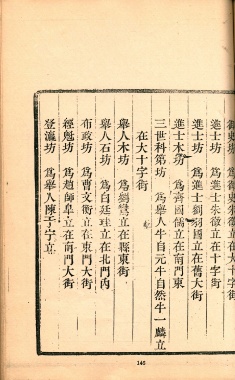 御史坊 為御史朱徵立在大十字街
進士坊 為進士朱徵立在十字街
進士坊 為進士劉翊國立在舊大街
進士木坊 為齊國儒立在南門東
三世科第坊 為舉人牛自元牛自然牛一麟立
在大十字街
舉人木坊 為鶴鸞立在縣東街
舉人石坊 為白廷珪立在北門內
布政坊 為曹文衡立在東門大街
經魁坊 為趙師皐立在南門大街
登瀛坊 為舉人陳于宁立
146